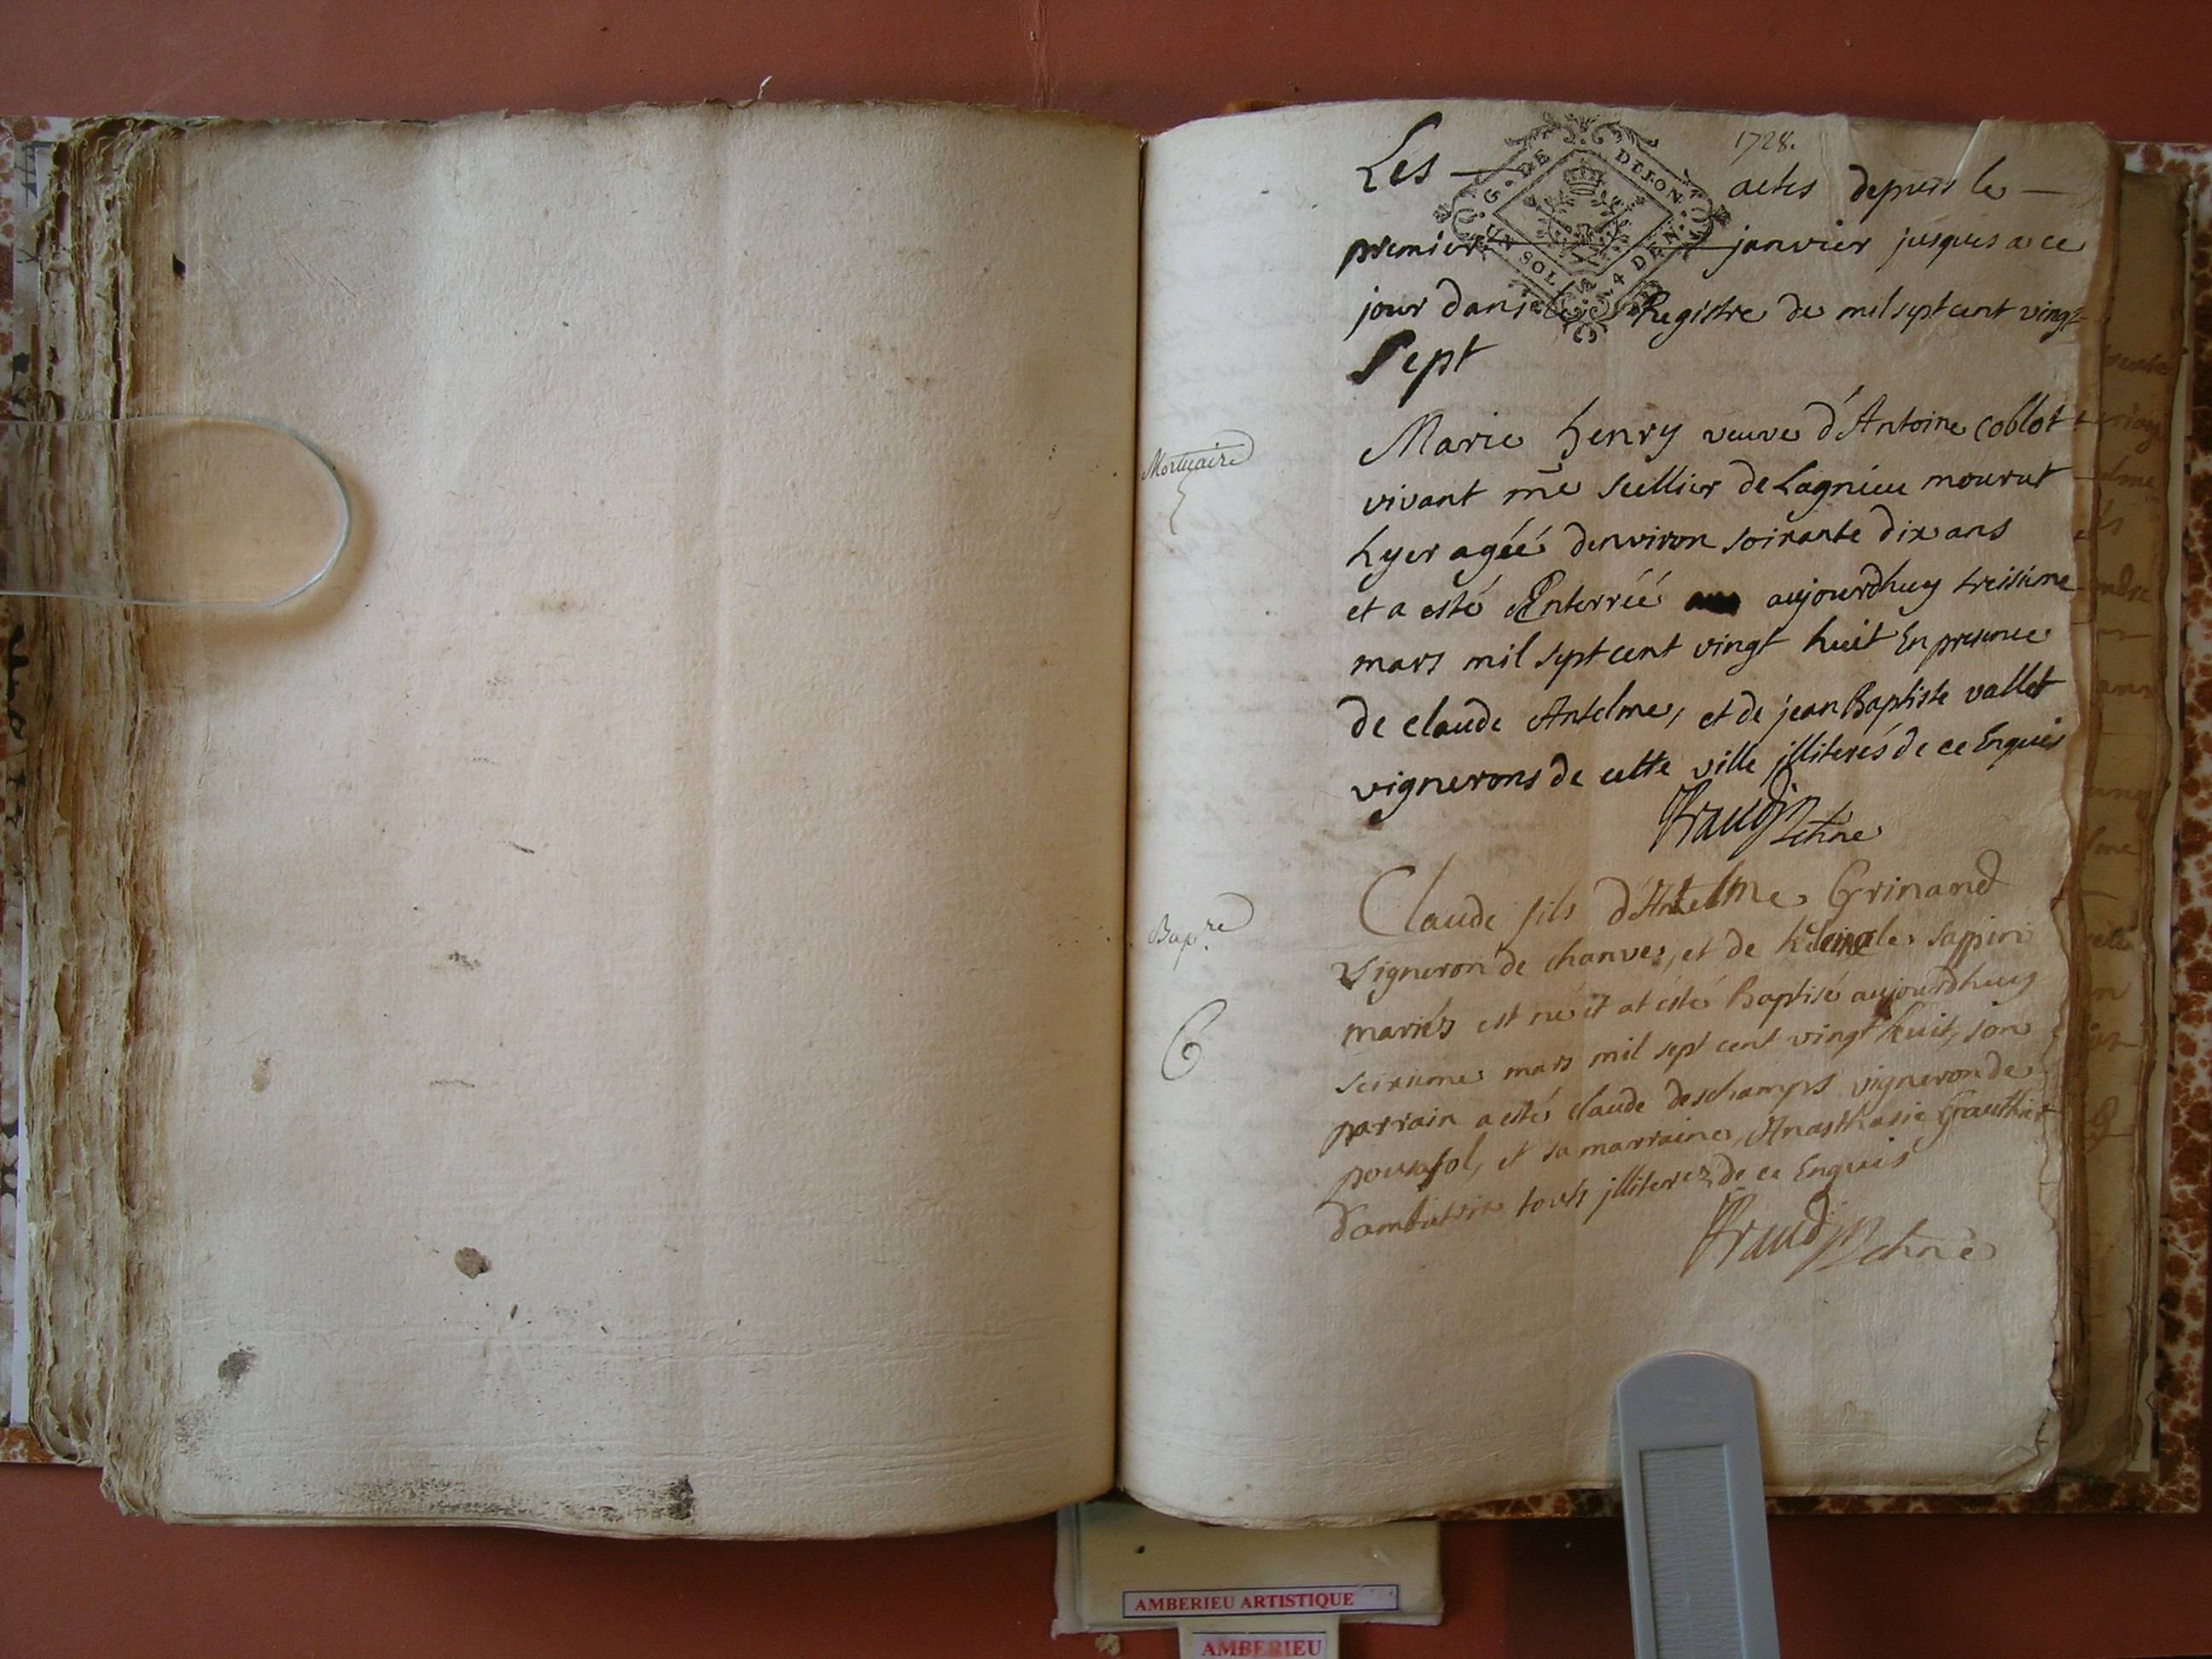 1728.
G. DE DIJON.
UN SOL 4 DEN.
Les actes depuis le
premier janvier jusques a ce
jour dans le Registre de mil sept cent vingt
Sept
Mortuaire
Marie henry veuve d'Antoine Coblot
vivant me sellier de Lagnieu mourut
hyer agéé denviron soixante dix ans
et a esté Enterréé aujourdhuy treisieme
mars mil sept cent vingt huit En presence
de claude Antelme, et de jean Baptiste vallet
vignerons de cette ville jlliterés de ce Enquis
chne
Bapre
Claude fils d'Antelme Grinand
vigneron de chanves, et de sappin
mariés est né et at ésté Baptisé aujourdhuy
seixieme mars mil sept cent vingt huit, son
parrain a esté claude deschamps vigneron de
et sa marraine, Anasthasie Gauthier
touts jlliterez de ce Enquis
chne
AMBERIEU ARTISTIQUE
AMBERIEU